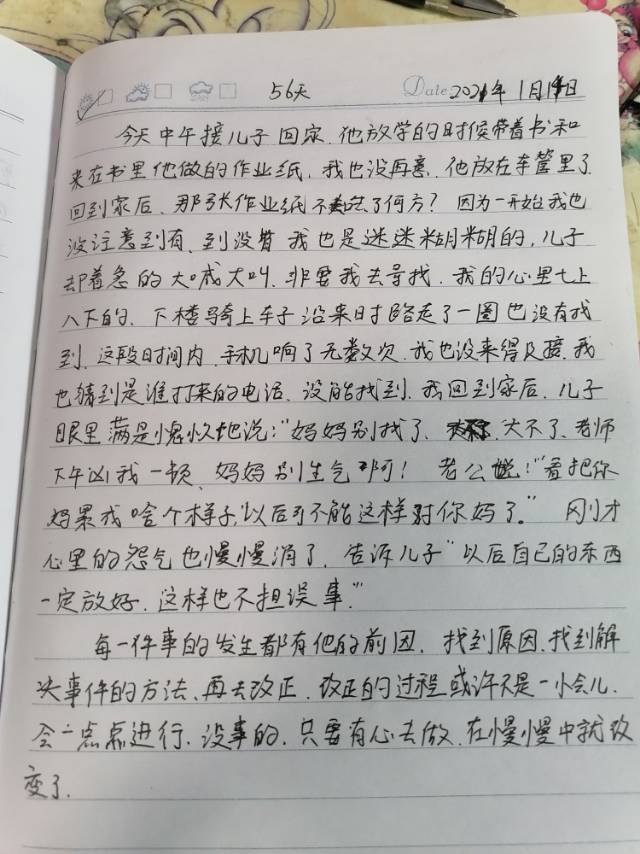 56天 Date 2021年1月14日
今天中午接儿子回家.他放学的时候带着书和
夹在书里他做的作业纸,我也没再意.他放在车筐里了
回到家后,那张作业纸不知去了何方?因为一开始我也
没注意到有,到没有我也是迷迷糊糊的,儿子
却着急的大喊大叫.非要我去寻找.我的心里七上
八下的.下楼骑上车子沿来时路走了一圈也没有找
到.这段时间内.手机响了无数次.我也没来得及接.我
也猜到是谁打来的电话.没能找到.我回到家后.儿子
眼里满是愧疚地说:"妈妈别找了、大不了.老师
下午凶我一顿、妈妈别生气啊!老公说:"看把你
妈累成啥个样子,以后可不能这样对你妈了。"刚才
心里的怨气也慢慢消了.告诉儿子"以后自己的东西
一定放好.这样也不担误事."
每一件事的发生都有他的前因.找到原因.找到解
决事件的方法、再去改正.改正的过程或许不是一小会儿.
会一点点进行.没事的.只要有心去做.在慢慢中就改
变了.